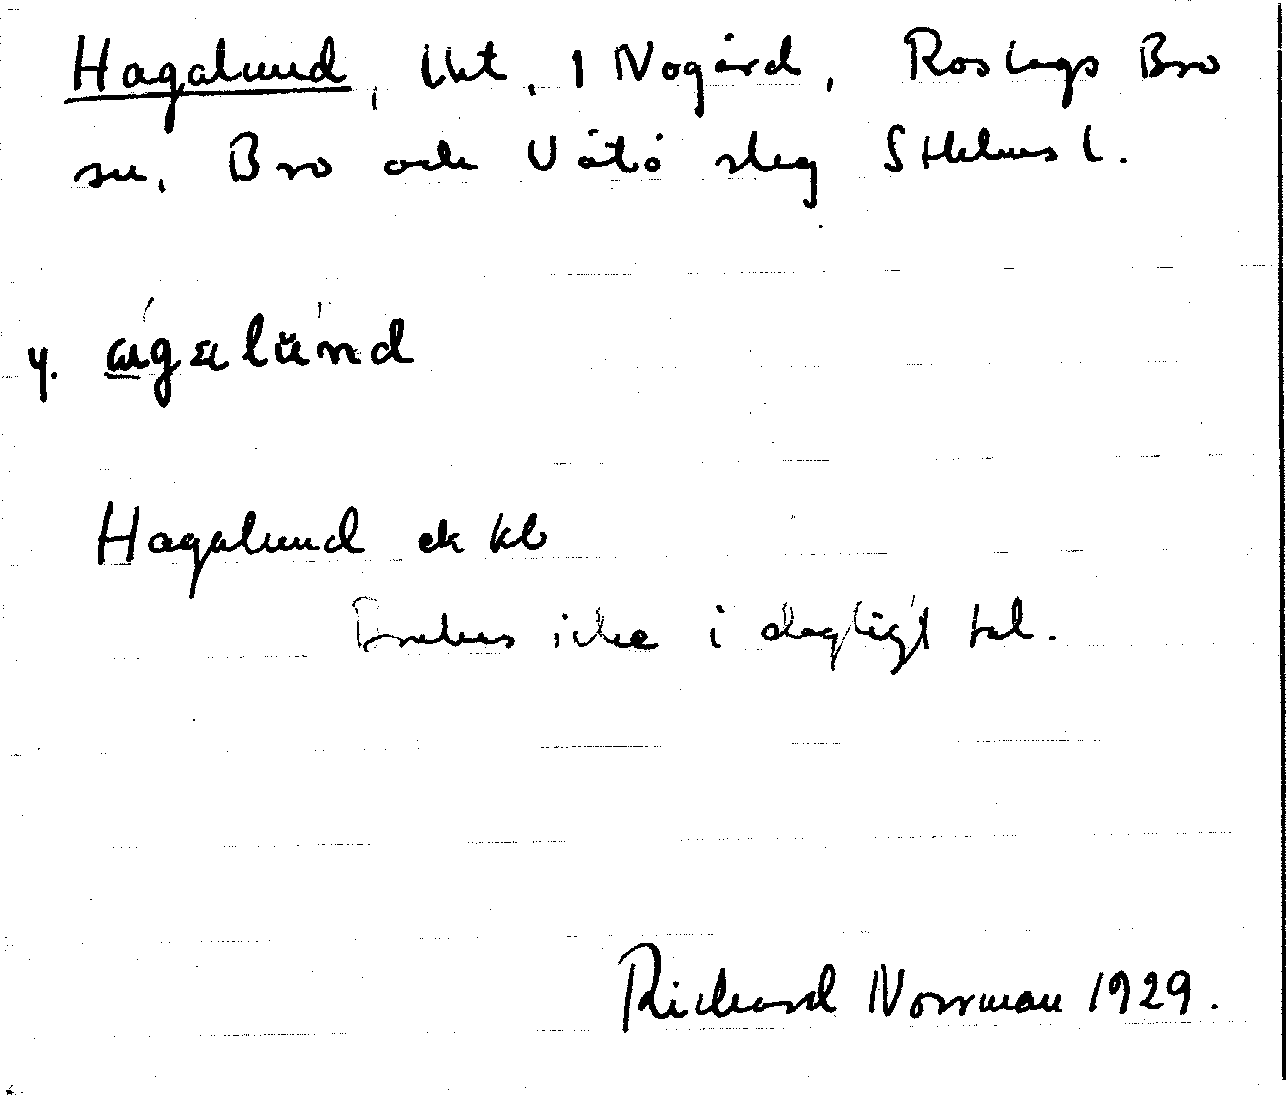 Hagalund, lht. 1 Nogård, Roslags Bro
sn. Bro och Vätö slag Sthlms l.
y. agalund
Hagalund ek kb
Brukas icke i dagligt tal.
Richard Norrman 1929.